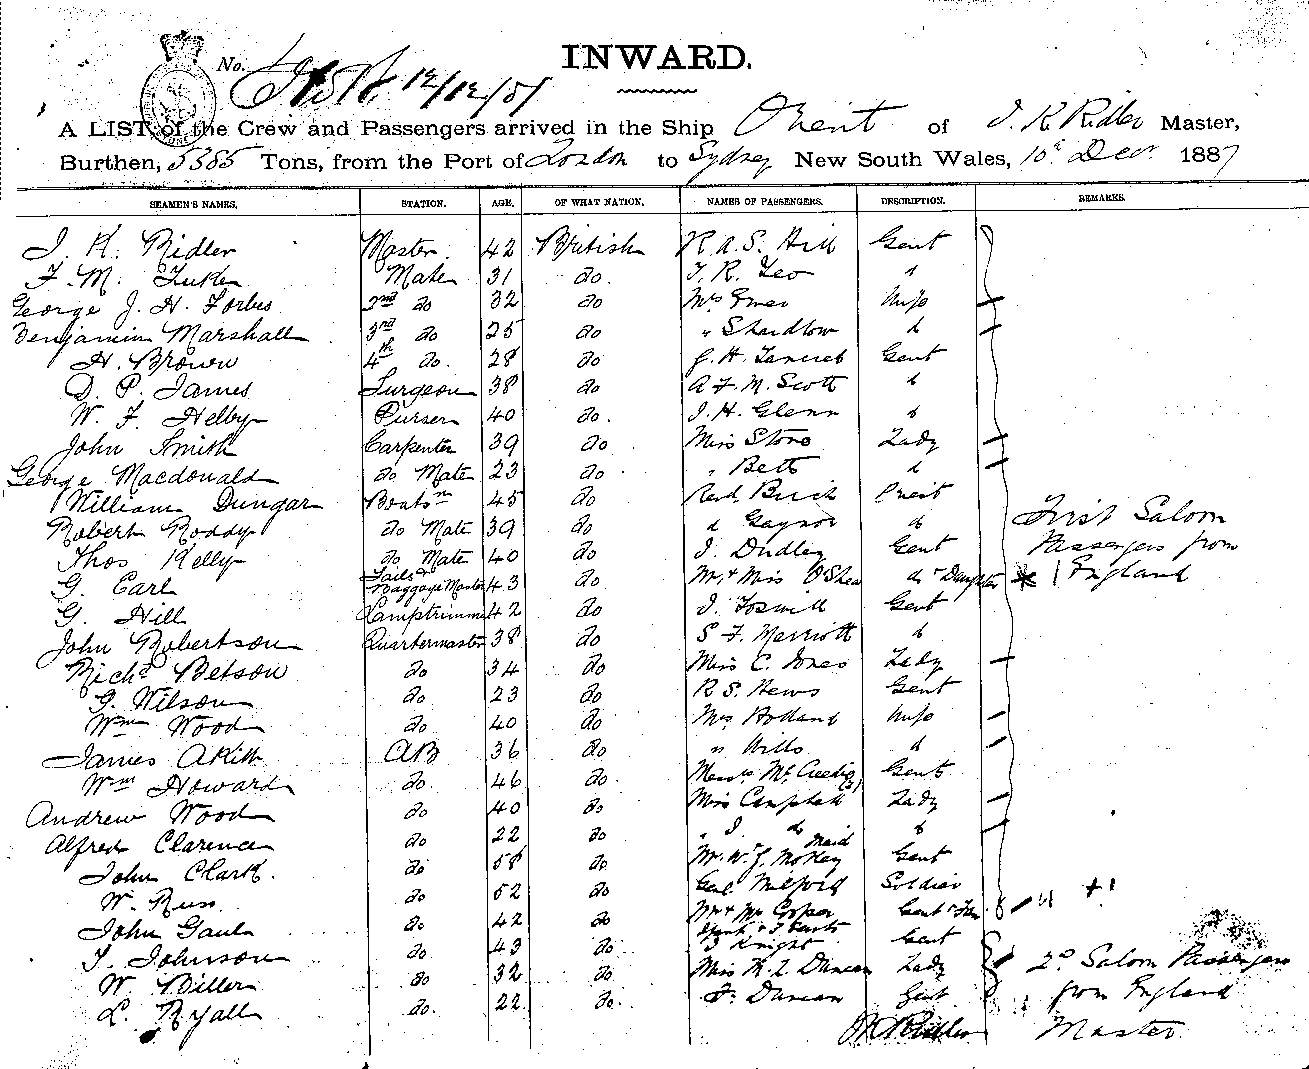 INWARD.
No. 12/12/87
A LIST of the Crew and Passengers arrived in the Ship Orient of J. K Ridler Master,
Burthen, 5385 Tons, from the Port of London to Sydney New South Wales, 10th Decr. 1887
SEAMEN'S NAMES. STATION. AGE. OF WHAT NATION. NAMES OF PASSENGERS. DESCRIPTION. REMARKS.
J. K. Ridler Master. 42 British R. A. S. Hill Gent
F. M. Tuke Mate 31 do. T. R. Leo d
George J. H. Forbes 2nd do 32 do Mrs Wife
Benjamin Marshall 3rd do 25 do " Shardlow d
H. Brown 4th do. 28 do J. H. Tancred Gent
D. P. James Surgeon 38 do A F. M. Scott d
W. F. Helby Purser 40 do. J. H. Glenn d
John Smith Carpenter 39 do Miss Stone Lady
George Macdonald do Mate 23 do " Betts d
William Dungar Boatsn 45 do Revd. Birch Priest
Robert Roddy do Mate 39 do d Gaynor do First Saloon
Thos Kelly do Mate 40 do J. Dudley Gent Passengers from
G. Earl Baggage Master 43 do Mr. & Miss O'Shea do & Daughter 1 England
G. Hill Lamptrimmer 42 do J. Gent
John Robertson Quartermaster 38 do S F. Merriott d
Richd Betson do 34 do Miss C. Jones Lady
G. Wilson do 23 do R S. Hews Gent
Wm Wood do 40 do Mrs Holland Wife
James AB 36 do " Wills d
Wm Howard do 46 do. Messrs Gents
Andrew Wood do 40 do Miss Campbell Lady
Alfred Clarence do 22 do " J. do d
John Clark. do 58 do Mr. W. J. McKay maid Gent
W. Russ. do 52 do Genl. Milford Soldier
John Gaul do 42 do Mr & Mrs Cooper Gent
J. Johnson do 43 do. Knight Gent
W. Biller do 32 do Miss K. L Duncan Lady 2nd Saloon Passengers
L. Ryall do. 22 do. F. Duncan Gent from England
J K Ridler Master